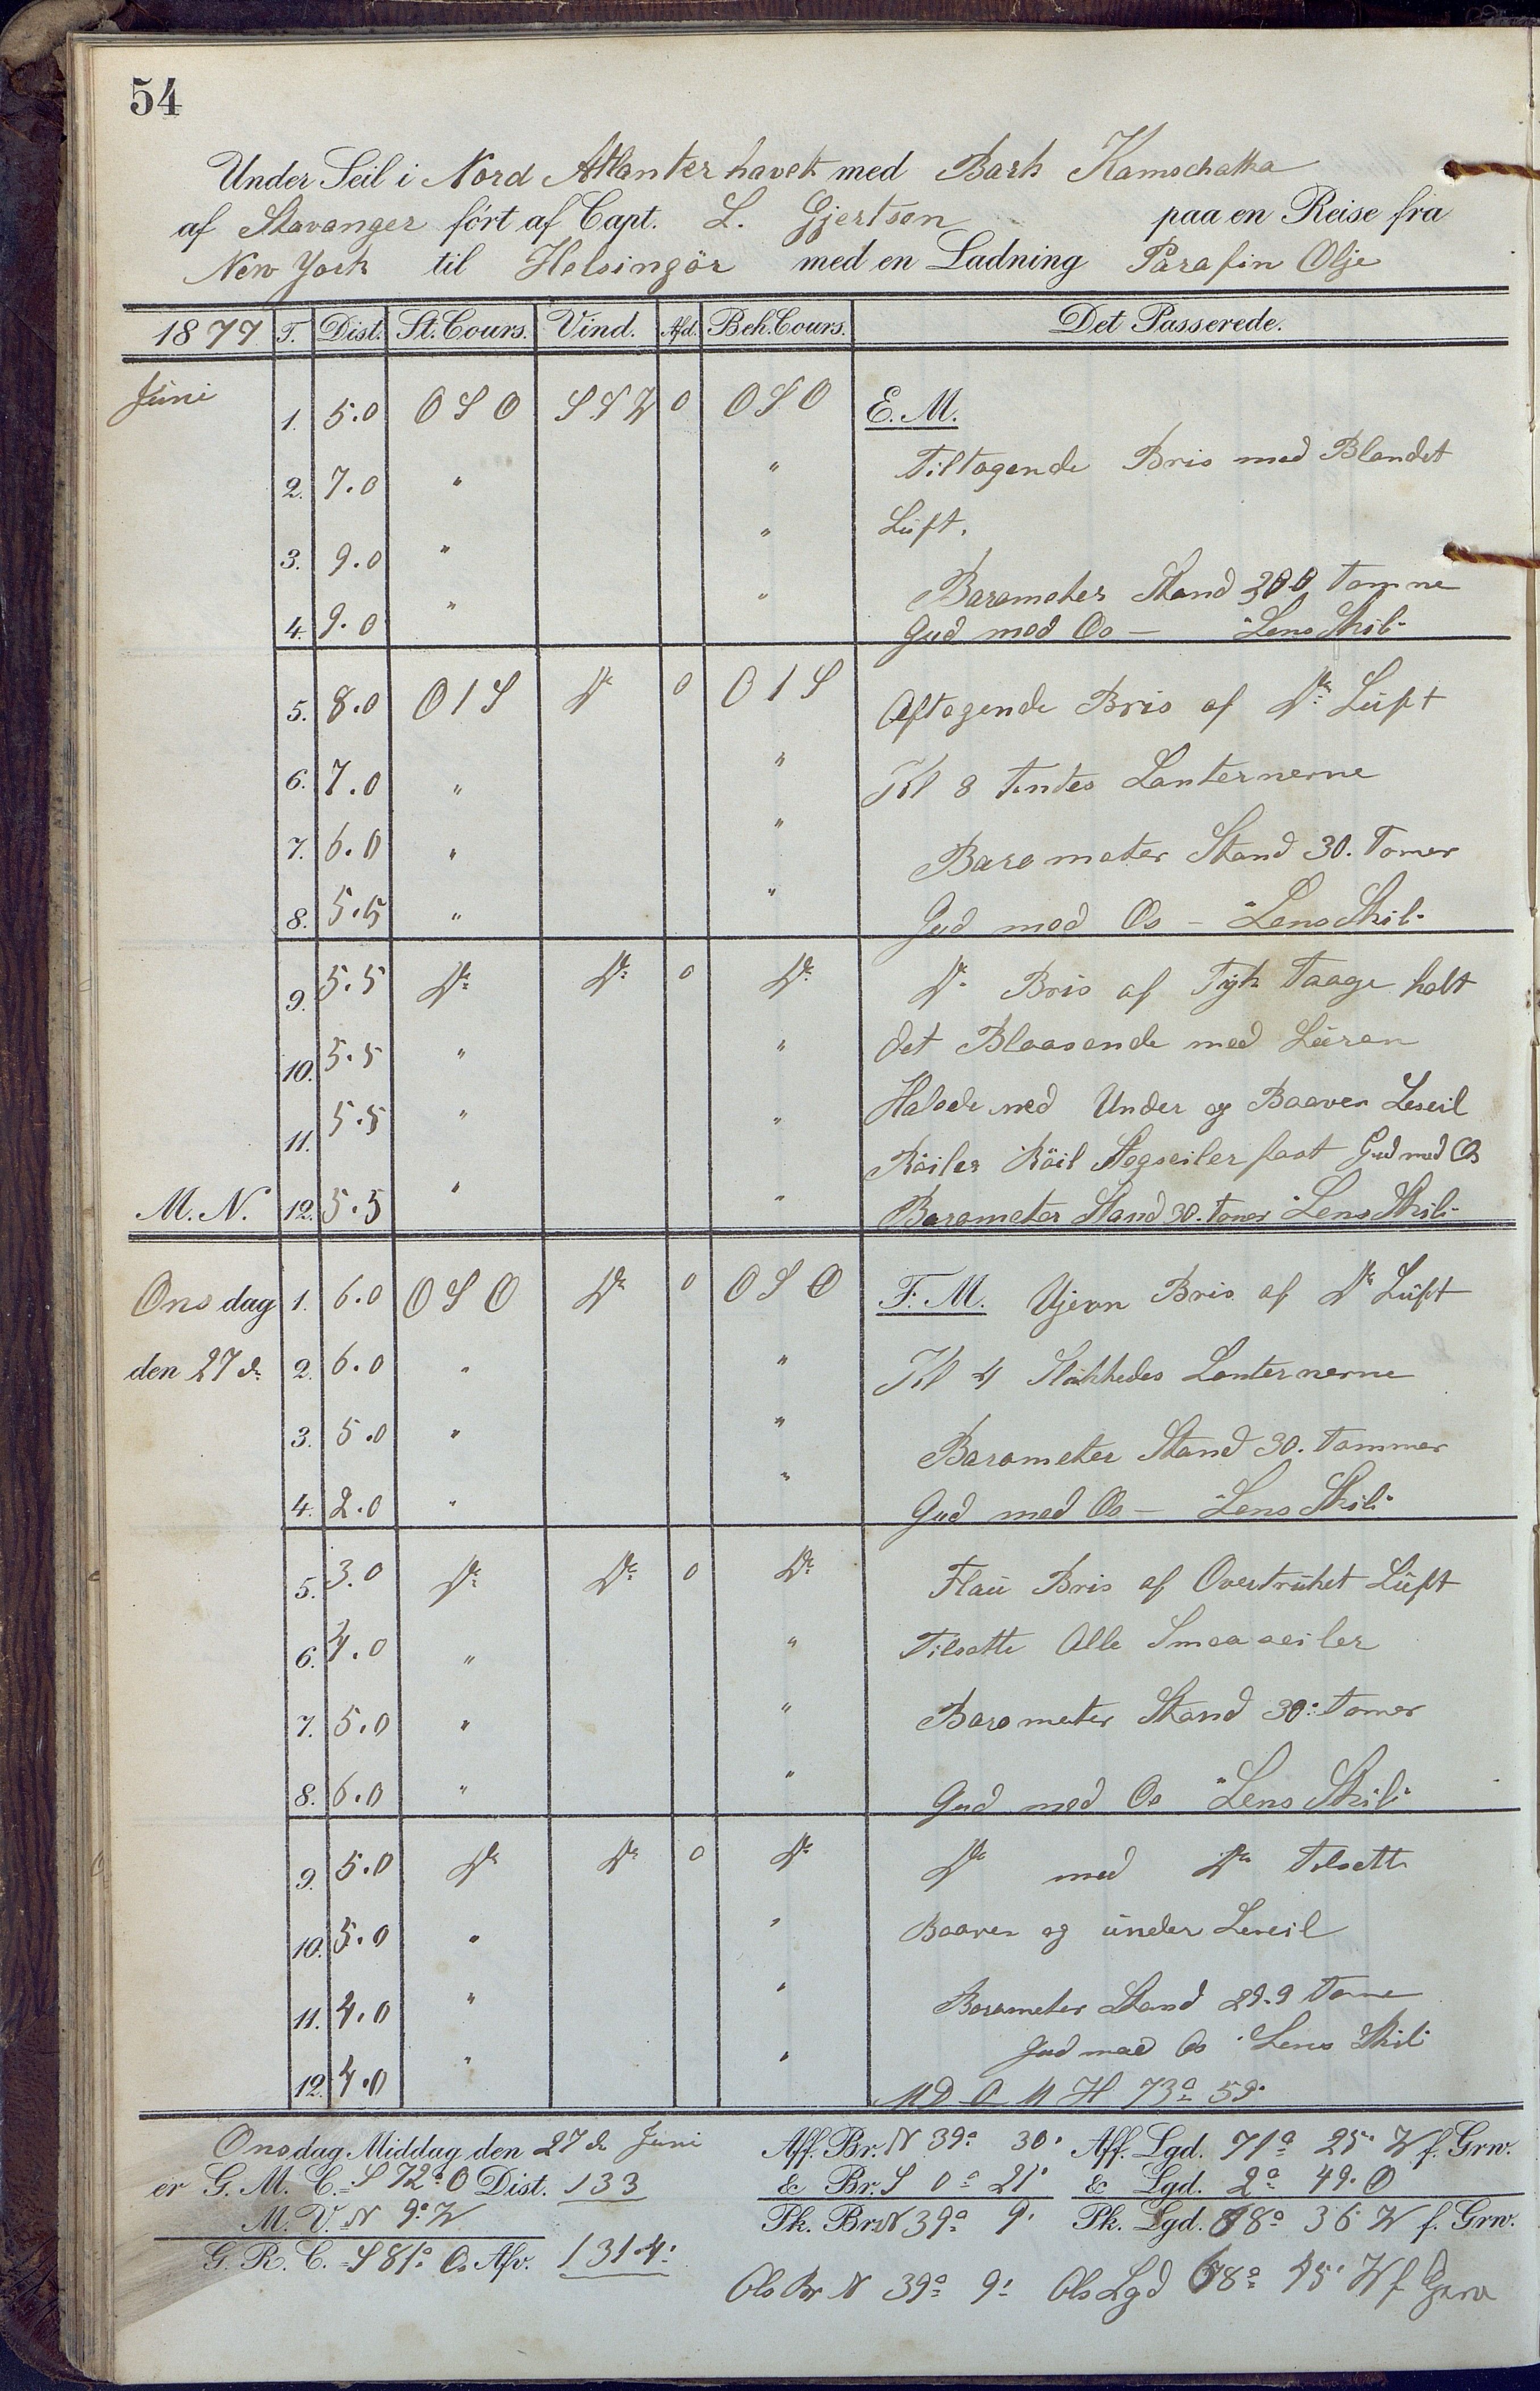 54
Under Seil i Nord Atlanterhavet med Bark Kamschatka
af Stavanger ført af Capt. L. Gjertsen paa en Reise fra
New York til Helsingør med en Ladning Parafin Olje
1877 T. Dist. St. Cours. Vind. Afd. Beh. Cours. Det Passerede.
Juni 1. 5.0 OSO SSW 0 OSO E. M.
2. 7.0 " " Tiltagende Bris med Blandet
3. 9.0 " " Luft.
Barometer Stand 30.0 Tomme
4. 9.0 " " Gud med Os — "Lens Skib"
5. 8.0 O1S Do 0 O1S Aftagende Bris af Do Luft
6. 7.0 " " Kl 8 tendtes Lanternerne
7. 6.0 " " Barometer Stand 30. Tomer
8. 5.5 " " Gud med Os — "Lens Skib"
9. 5.5 Do Do 0 Do Do Bris af Tyk Taage holt
10. 5.5 " " det Blaasende med Luren
11. 5.5 " " Halede ned Under og Baaven Leseil
Röiler Röil Stagseiler fast Gud med Os
M. N. 12. 5.5 " " Barometer Stand 30. tomer "Lens Skib"
Onsdag 1. 6.0 OSO Do 0 OSO F. M. Ujevn Bris af Do Luft
den 27 de 2. 6.0 " " Kl 4 Slukkedes Lanternerne
3. 5.0 " " Barometer Stand 30. Tommer
4. 2.0 " " Gud med Os — "Lens Skib"
5. 3.0 Do Do 0 Do Flau Bris af Overtrukket Luft
6. 4.0 " " Tilsatte Alle Smaaseiler
7. 5.0 " " Barometer Stand 30: tomer
8. 6.0 " " Gud med Os "Lens Skib"
9. 5.0 Do Do 0 Do Do med Do Tilsatte
10. 5.0 " " Baaven og under Leseil
11. 4.0 " " Barometer Stand 29.9 Tome
Gud med Os "Lens Skib"
12. 4.0 " " M D O M H 73° 59'
Onsdag Middag den 27 de Juni Aff. Br. N 39° 30' Aff. Lgd. 71° 25' W f. Grw.
er G. M. C. = S 72° O Dist. 133 & Br. S 0° 21' & Lgd. 2° 49' O
M. V. = N 9° W Pk. Br. N 39° 9' Pk. Lgd. 68° 36' W f. Grw.
G. R. C. = S 81° O. Afv. 131.4'
Obs Br N 39° 9' Obs Lgd 68° 45' W f Grw